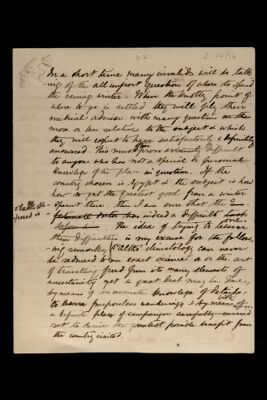 In a short time many invalids will be talk-
ing of the all import question of where to spend
the coming winter. When the knotty point of
where to go is settled they will ply their
medical adviser with many questions
more or less relative to the subject which
they will expect to have satisfactorily & definitely
answered. This must prove difficult
to anyone who has not a special & personal
knowledge of the place in question. If the
country chosen is Egypt & the subject is how
how to get the greatest good from a winter
spent there, then I am one that the
has indeed a difficult
The idea of trying to lessen
these difficulties is my excuse for the follow-
ing remarks. climatology can never
be reduced to an exact science or the art
of travelling freed from its many elements of
uncertainty yet a great deal may be done
by means of an accurate knowledge of details
to lessen purposeless wanderings & by means of
a definite plan of campaign carefully carried
out to derive the greatest possible benefit from
the country visited.